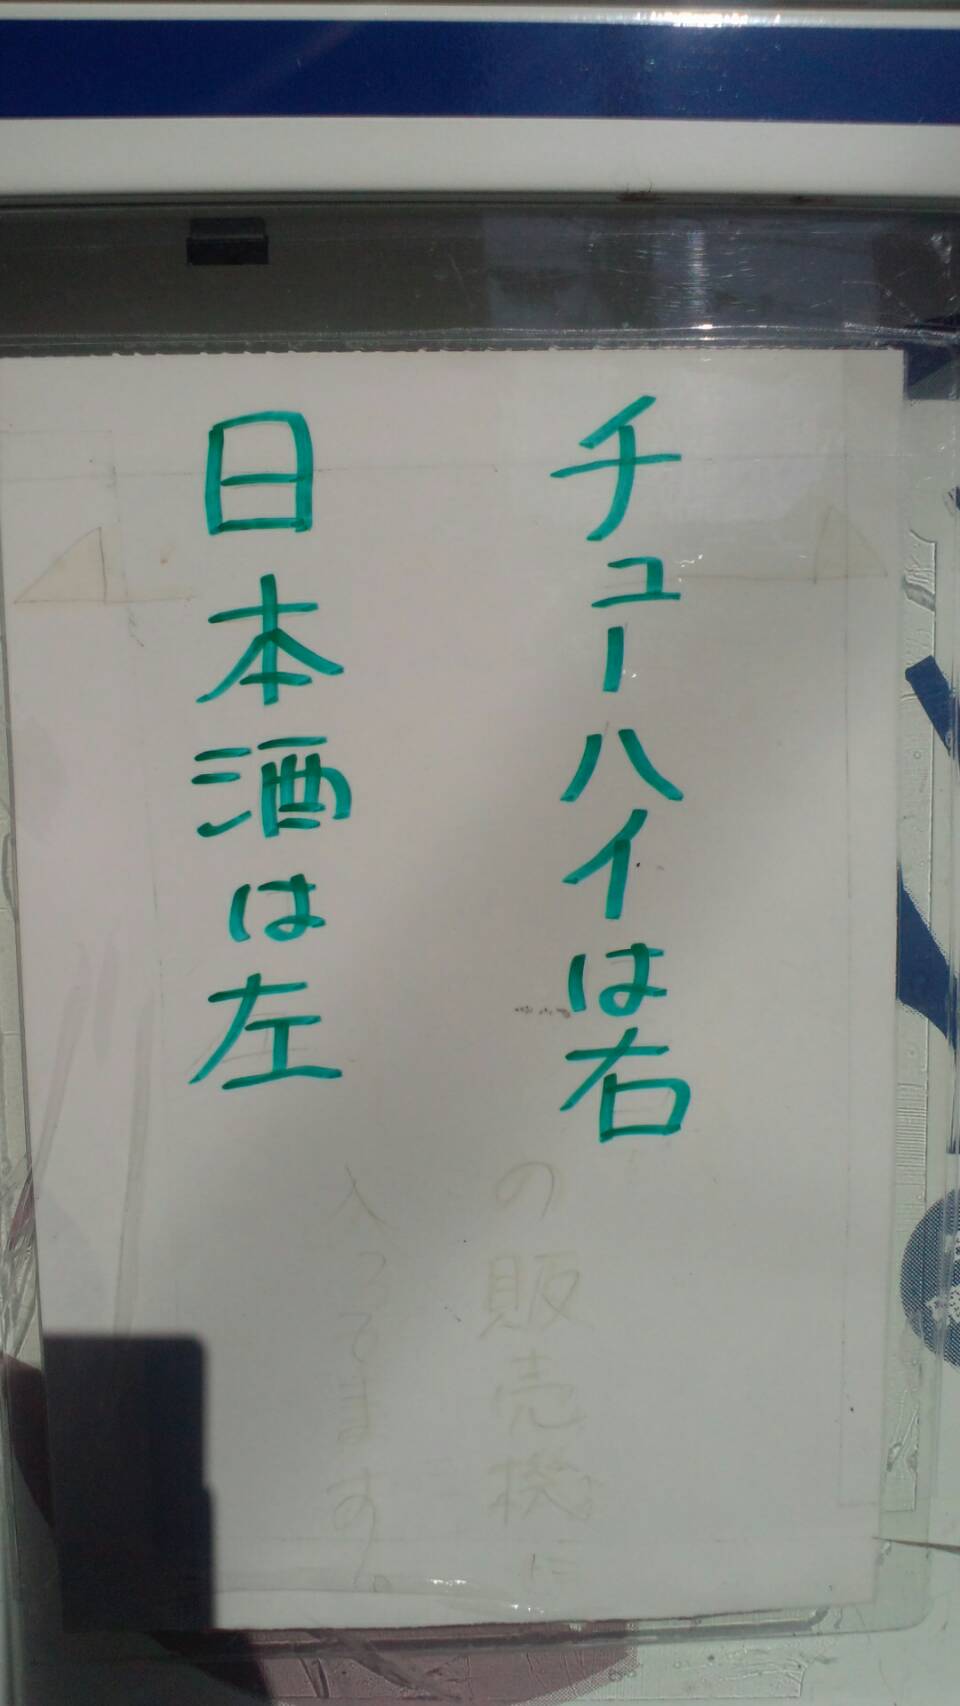 チューハイは右
の販売機に
入ってます。
日本酒は左